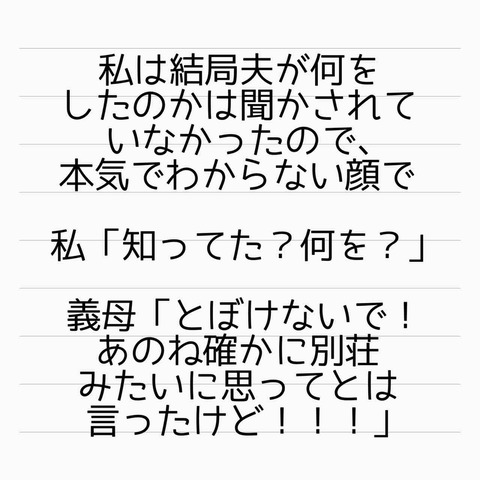 私は結局夫が何を
したのかは聞かされて
いなかったので、
本気でわからない顔で
私「知ってた？何を？」
義母「とぼけないで！
あのね確かに別荘
みたいに思ってとは
言ったけど！！！」